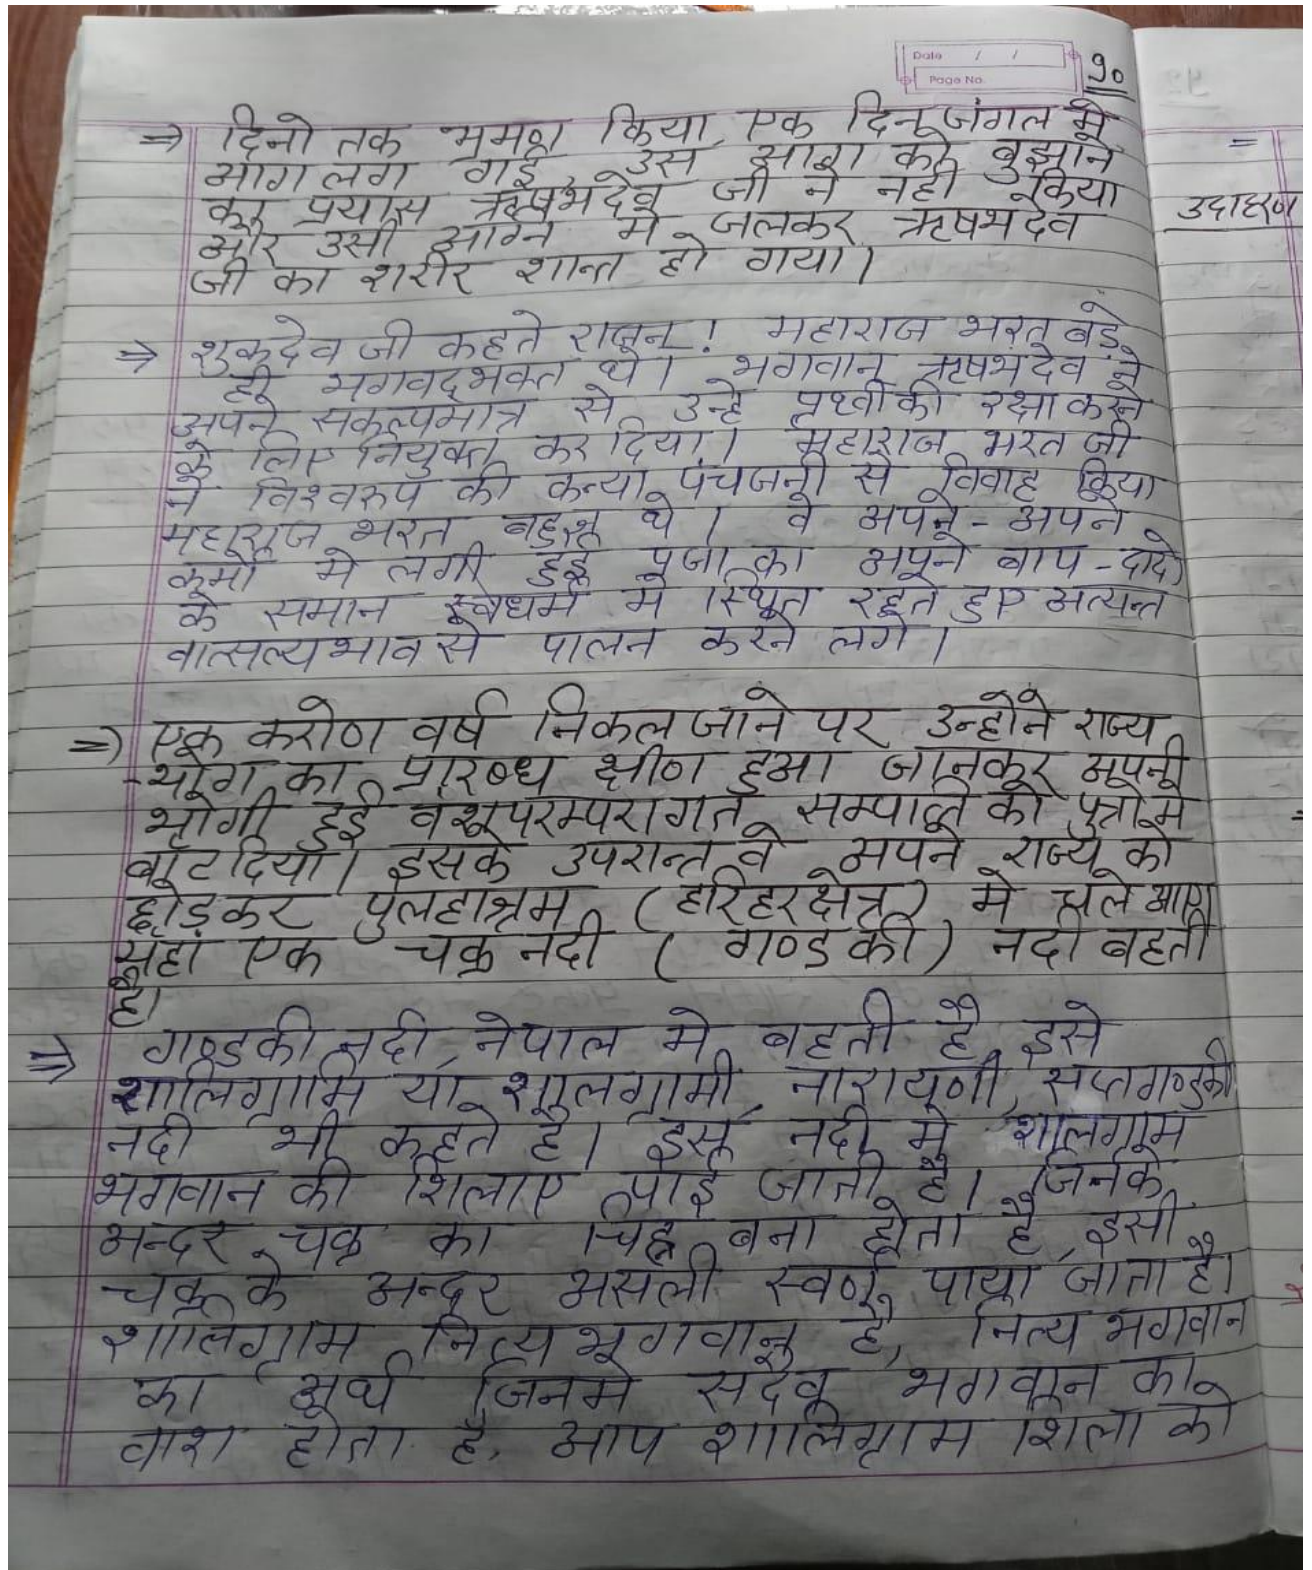 Date / /
Page No.
90
⇒ दिनो तक भ्रमण किया, एक दिन जंगल मे
आग लग गई, उस आग को बुझाने
का प्रयास ऋषभदेव जी ने नही किया
और उसी अग्नि मे जलकर ऋषभदेव
जी का शरीर शान्त हो गया।
⇒ शुकदेव जी कहते राजन्! महाराज भरत बडे
ही भगवद्भक्त थे। भगवान् ऋषभदेव ने
अपने संकल्पमात्र से उन्हे पृथ्वी की रक्षा करने
के लिए नियुक्त कर दिया। महाराज भरत जी
ने विश्वरुप की कन्या पंचजनी से विवाह किया
महाराज भरत बहुज्ञ थे। वे अपने-अपने
कर्मो मे लगी हुई प्रजा का अपने बाप-दादो
के समान स्वधर्म मे स्थित रहते हुए अत्यन्त
वात्सल्यभाव से पालन करने लगे।
⇒ एक करोण वर्ष निकल जाने पर उन्होने राज्य
-भोग का प्रारब्ध क्षीण हुआ जानकर अपनी
भोगी हुई वंशपरम्परागत सम्पत्ति को पुत्रो मे
बाँट दिया। इसके उपरान्त वे अपने राज्य को
छोड़कर पुलहाश्रम (हरिहरक्षेत्र) मे चले आए
यहां एक चक्र नदी (गण्डकी) नदी बहती
है।
⇒ गण्डकी नदी, नेपाल मे बहती है, इसे
शालिग्रामि या शालग्रामी, नारायणी, सप्तगण्डकी
नदी भी कहते है। इस नदी मे शालग्राम
भगवान की शिलाए पाई जाती है। जिनके
अन्दर चक्र का चिह्न बना होता है, इसी
चक्र के अन्दर असली स्वर्ण पाया जाता है।
शालिग्राम नित्य भगवान् है, नित्य भगवान
का अर्थ जिनमे सदैव भगवान का
वाश होता है, आप शालिग्राम शिला को
उदाहरण